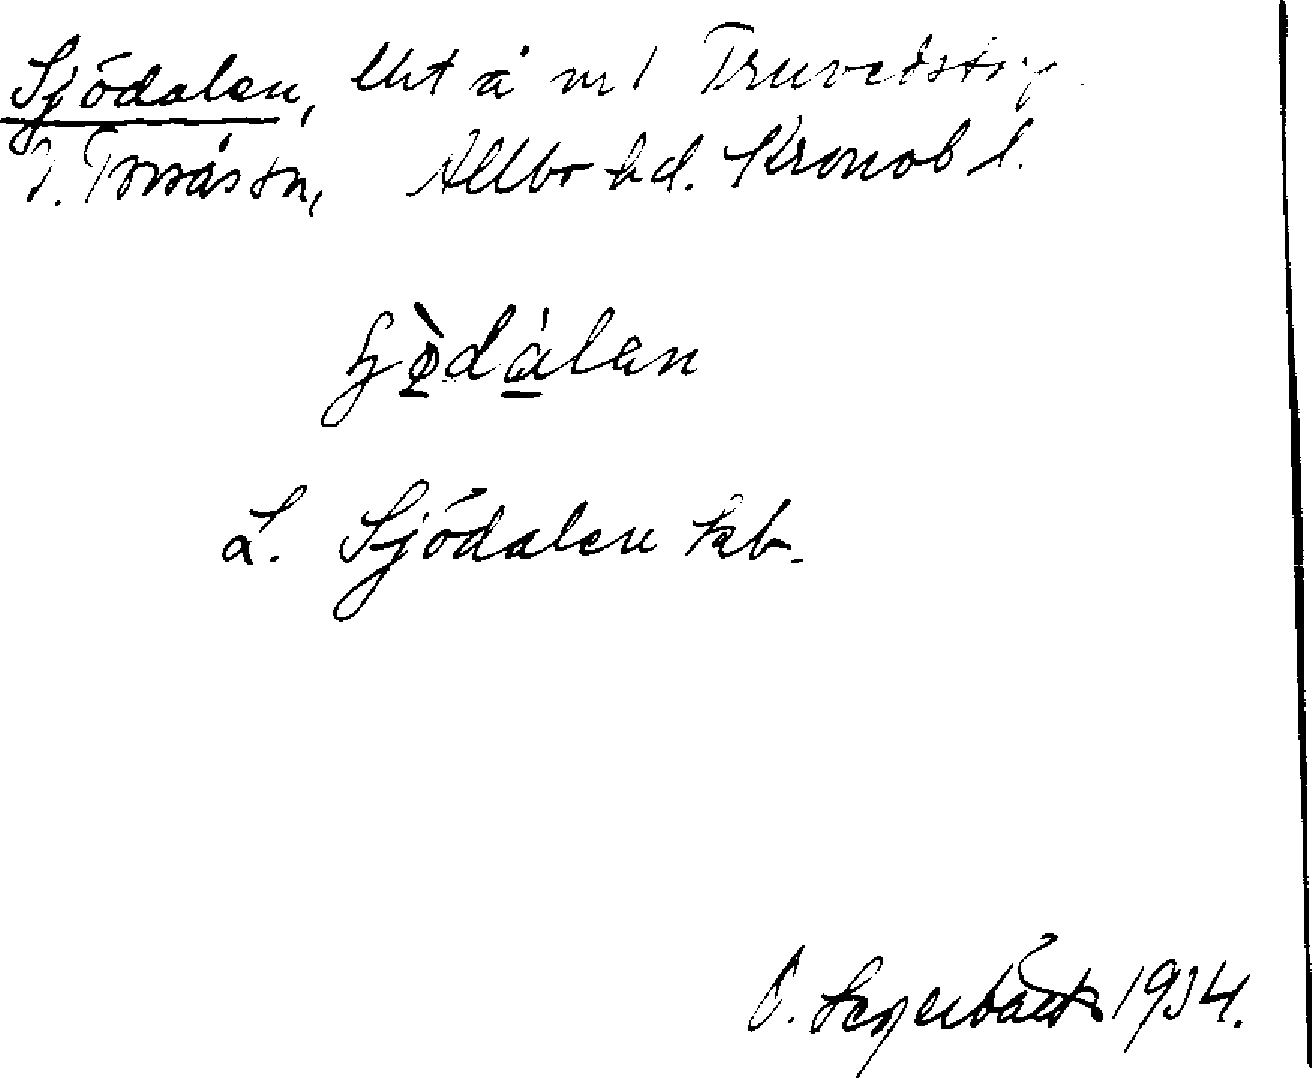 Sjödalen, lht å nr 1 Truvedstorp
V. Torsås sn, Allbo hd. Kronob l.
ɧòdálen
L. Sjödalen kb.
O. Segerbäck 1934.